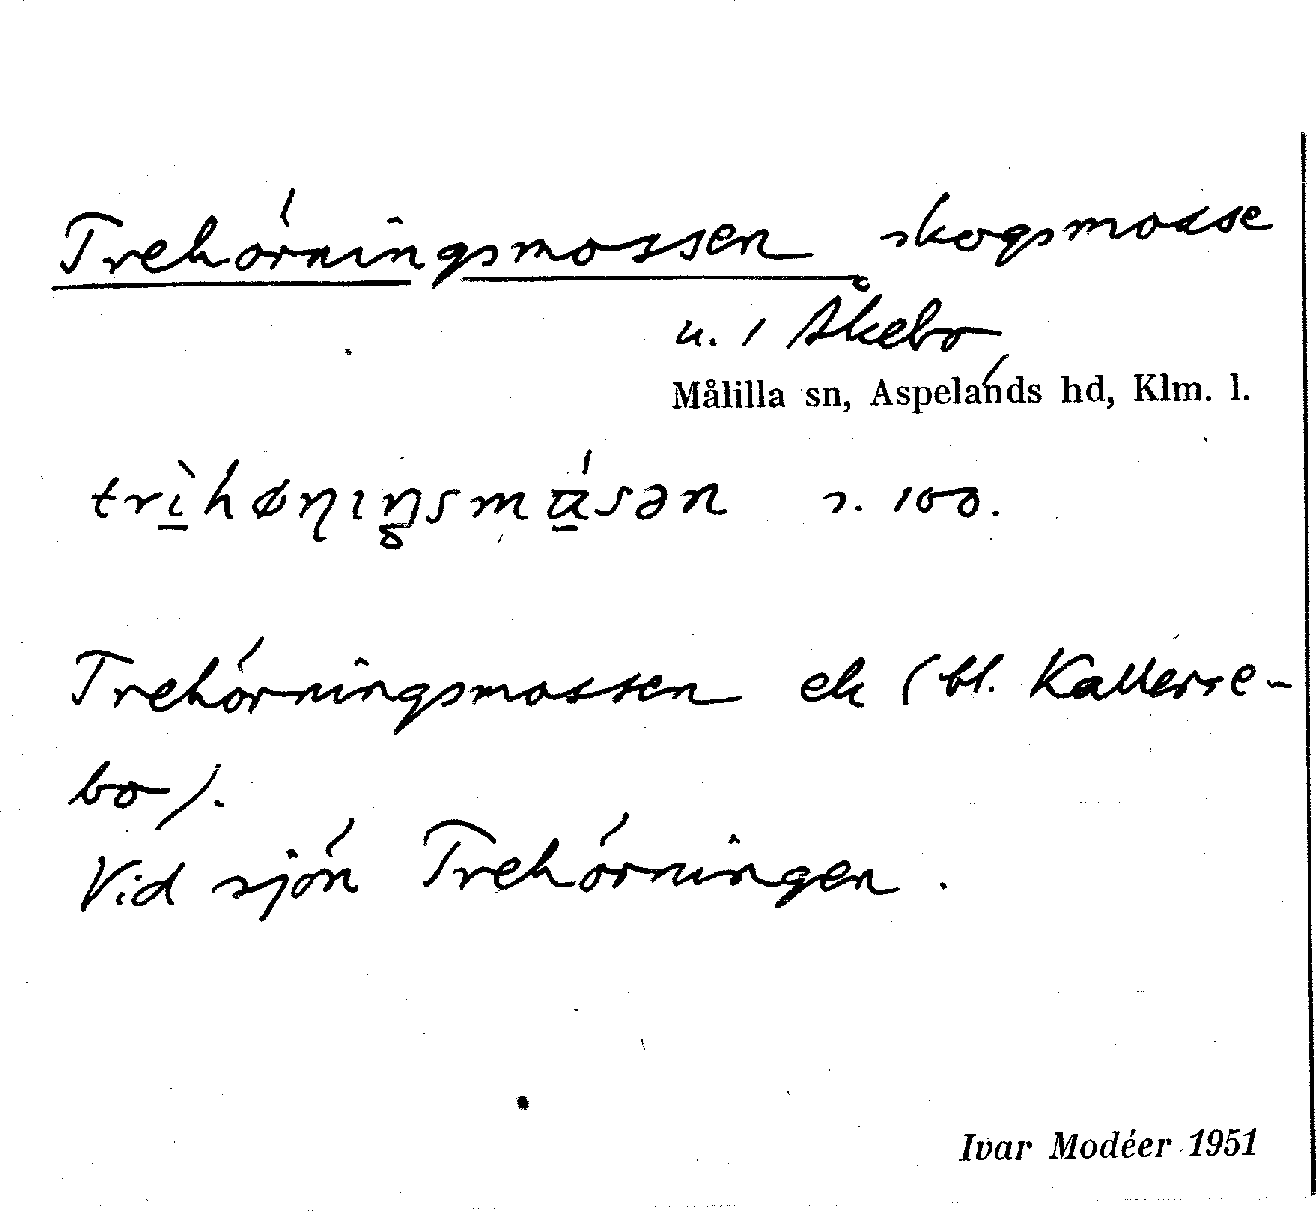 Trehörningsmossen skogsmosse
u. / Åkebo
Målilla sn, Aspelands hd, Klm. l.
trìhøɳıŋsmɑ́sən s. 100.
Trehörningsmossen ek (bl. Kallerse-
bo).
Vid sjön Trehörningen.
Ivar Modéer 1951